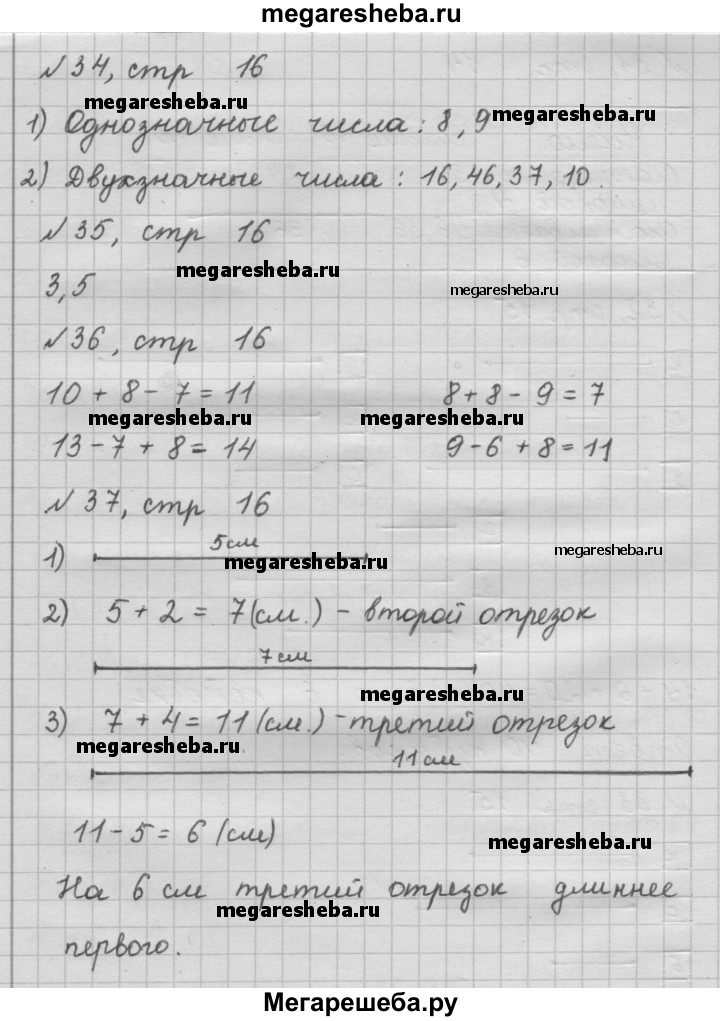 megaresheba.ru
№34, стр 16
megaresheba.ru
1) Однозначные числа: 8, 9
megaresheba.ru
2) Двухзначные числа: 16, 46, 37, 10.
№35, стр 16
megaresheba.ru
3, 5
megaresheba.ru
№36, стр 16
10 + 8 - 7 = 11 8 + 8 - 9 = 7
megaresheba.ru megaresheba.ru
13 - 7 + 8 = 14 9 - 6 + 8 = 11
№37, стр 16
5 см
1)
megaresheba.ru megaresheba.ru
2) 5 + 2 = 7 (см.) - второй отрезок
7 см
megaresheba.ru
3) 7 + 4 = 11 (см.) - третий отрезок
megaresheba.ru
11 см
11 - 5 = 6 (см)
megaresheba.ru
На 6 см третий отрезок длиннее
megaresheba.ru
первого.
Мегарешеба.ру